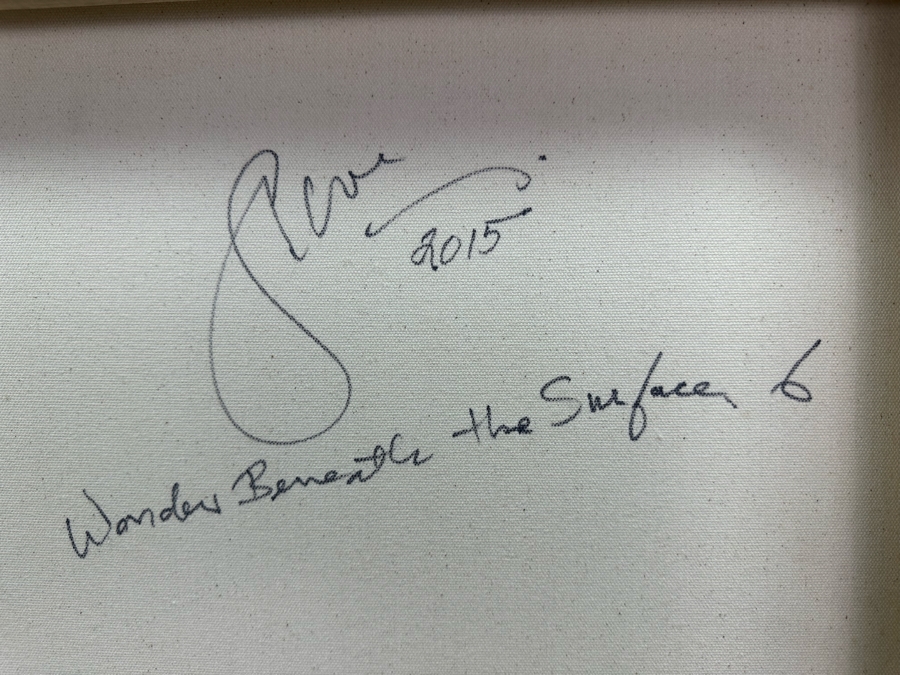 2015
Wonder Beneath the Surface 6